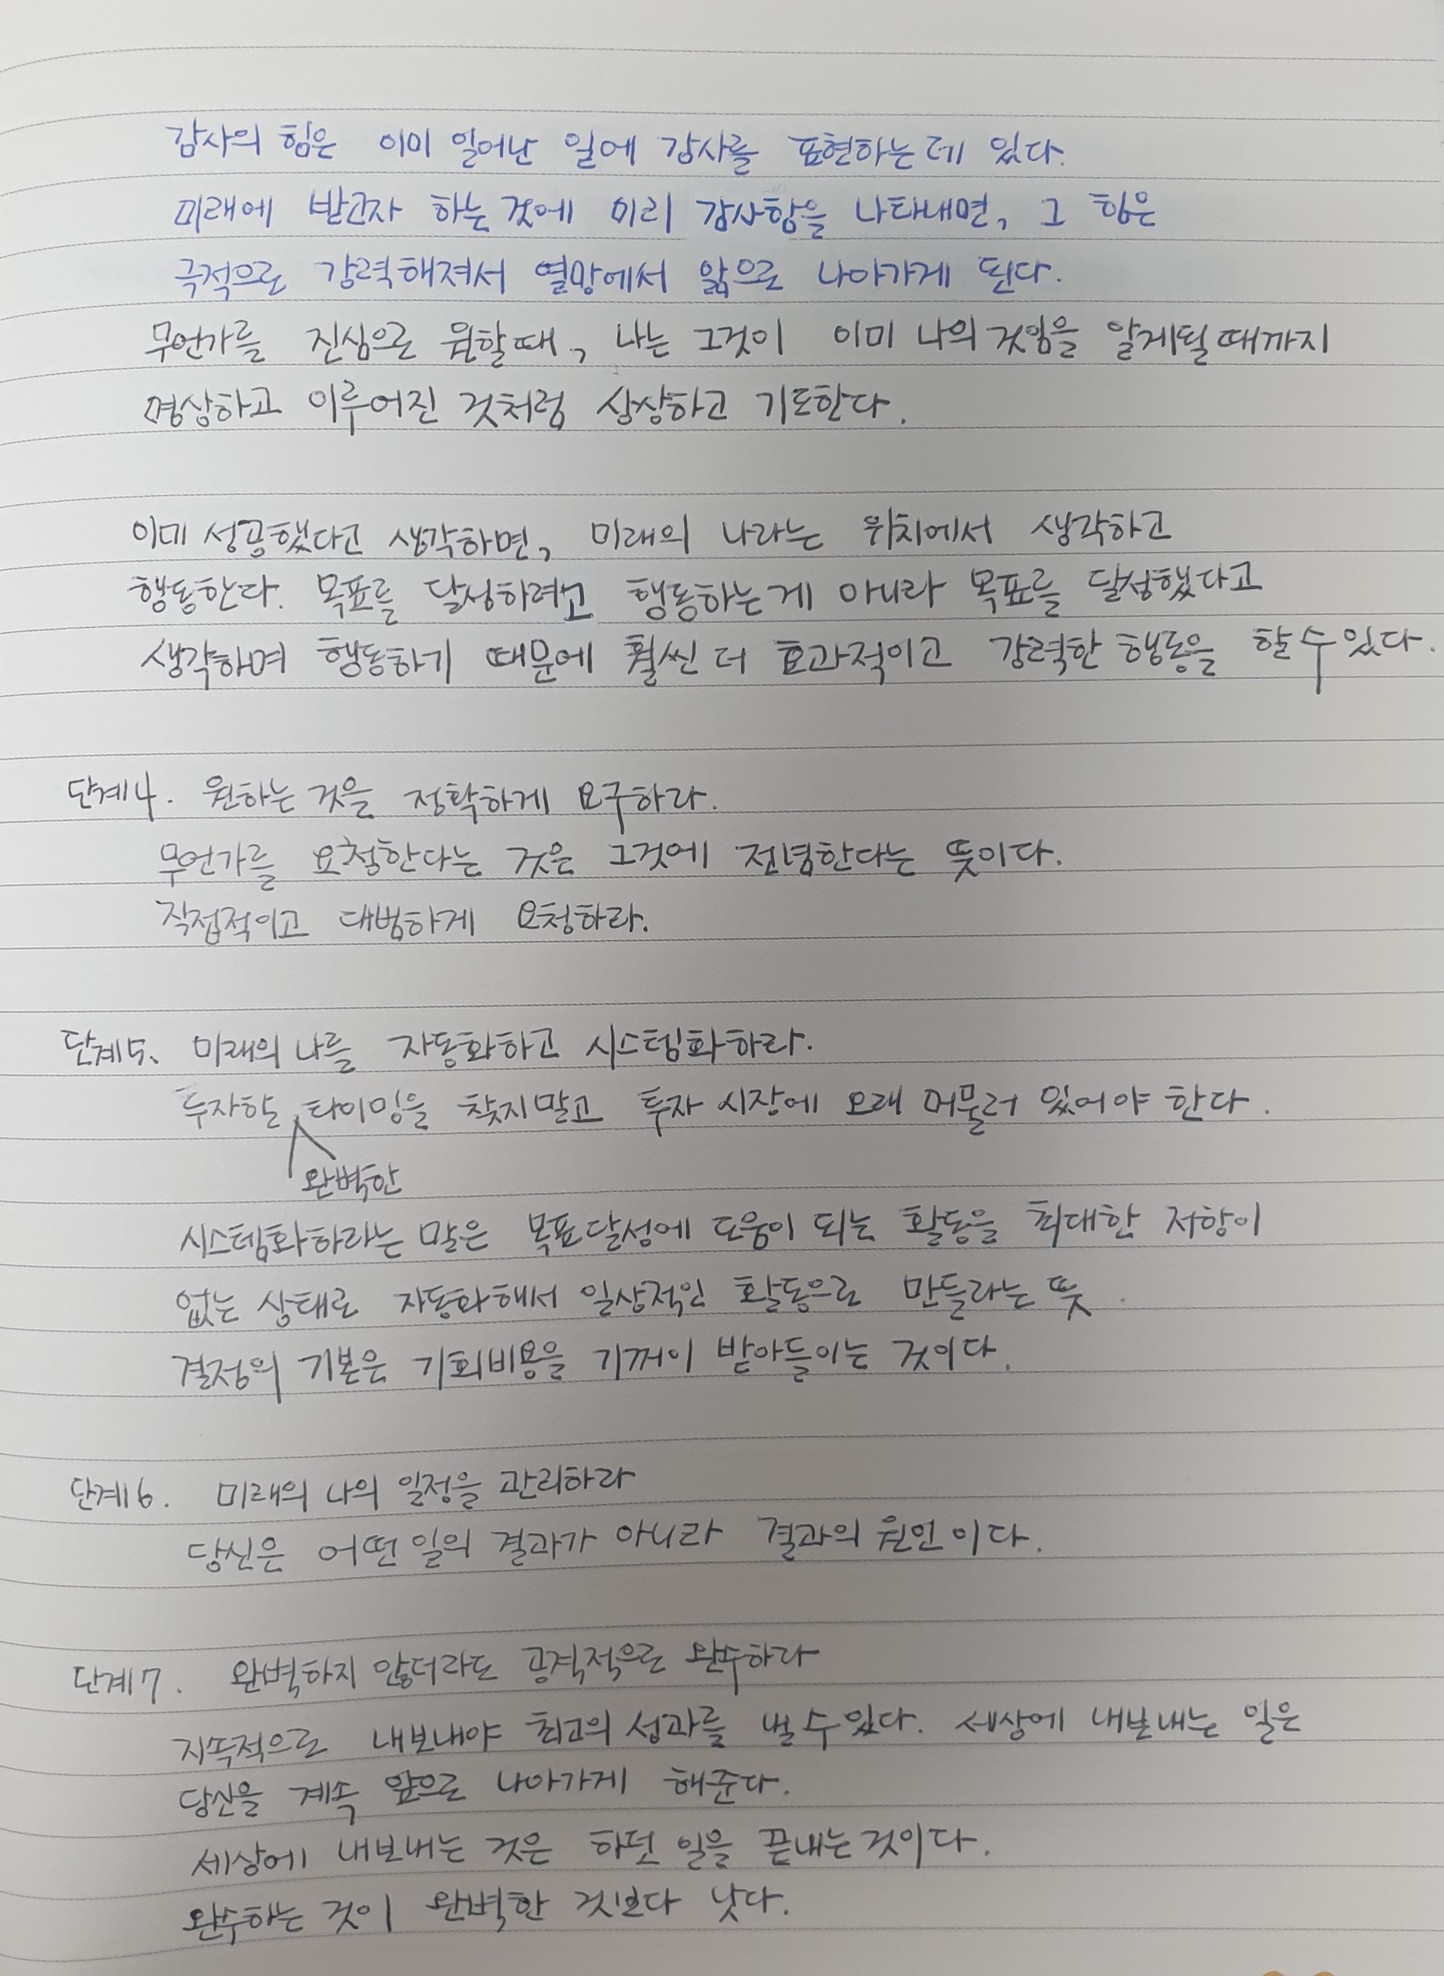 감사의 힘은 이미 일어난 일에 감사를 표현하는데 있다.
미래에 받고자 하는 것에 미리 감사함을 나타내면, 그 힘은
극적으로 강력해져서 열망에서 앎으로 나아가게 된다.
무언가를 진심으로 원할때, 나는 그것이 이미 나의 것임을 알게될 때까지
명상하고 이루어진 것처럼 상상하고 기도한다.
이미 성공했다고 생각하면, 미래의 나라는 위치에서 생각하고
행동한다. 목표를 달성하려고 행동하는게 아니라 목표를 달성했다고
생각하며 행동하기 때문에 훨씬 더 효과적이고 강력한 행동을 할 수 있다.
단계4. 원하는 것을 정확하게 요구하라.
무언가를 요청한다는 것은 그것에 전념한다는 뜻이다.
직접적이고 대범하게 요청하라.
단계5. 미래의 나를 자동화하고 시스템화하라.
투자할 타이밍을 찾지말고 투자 시장에 오래 머물러 있어야 한다.
완벽한
시스템화하라는 말은 목표달성에 도움이 되는 활동을 최대한 저항이
없는 상태로 자동화해서 일상적인 활동으로 만들라는 뜻.
결정의 기본은 기회비용을 기꺼이 받아들이는 것이다.
단계6. 미래의 나의 일정을 관리하라
당신은 어떤 일의 결과가 아니라 결과의 원인이다.
단계7. 완벽하지 않더라도 공격적으로 완수하라
지속적으로 내보내야 최고의 성과를 낼 수 있다. 세상에 내보내는 일은
당신을 계속 앞으로 나아가게 해준다.
세상에 내보내는 것은 하던 일을 끝내는 것이다.
완수하는 것이 완벽한 것보다 낫다.